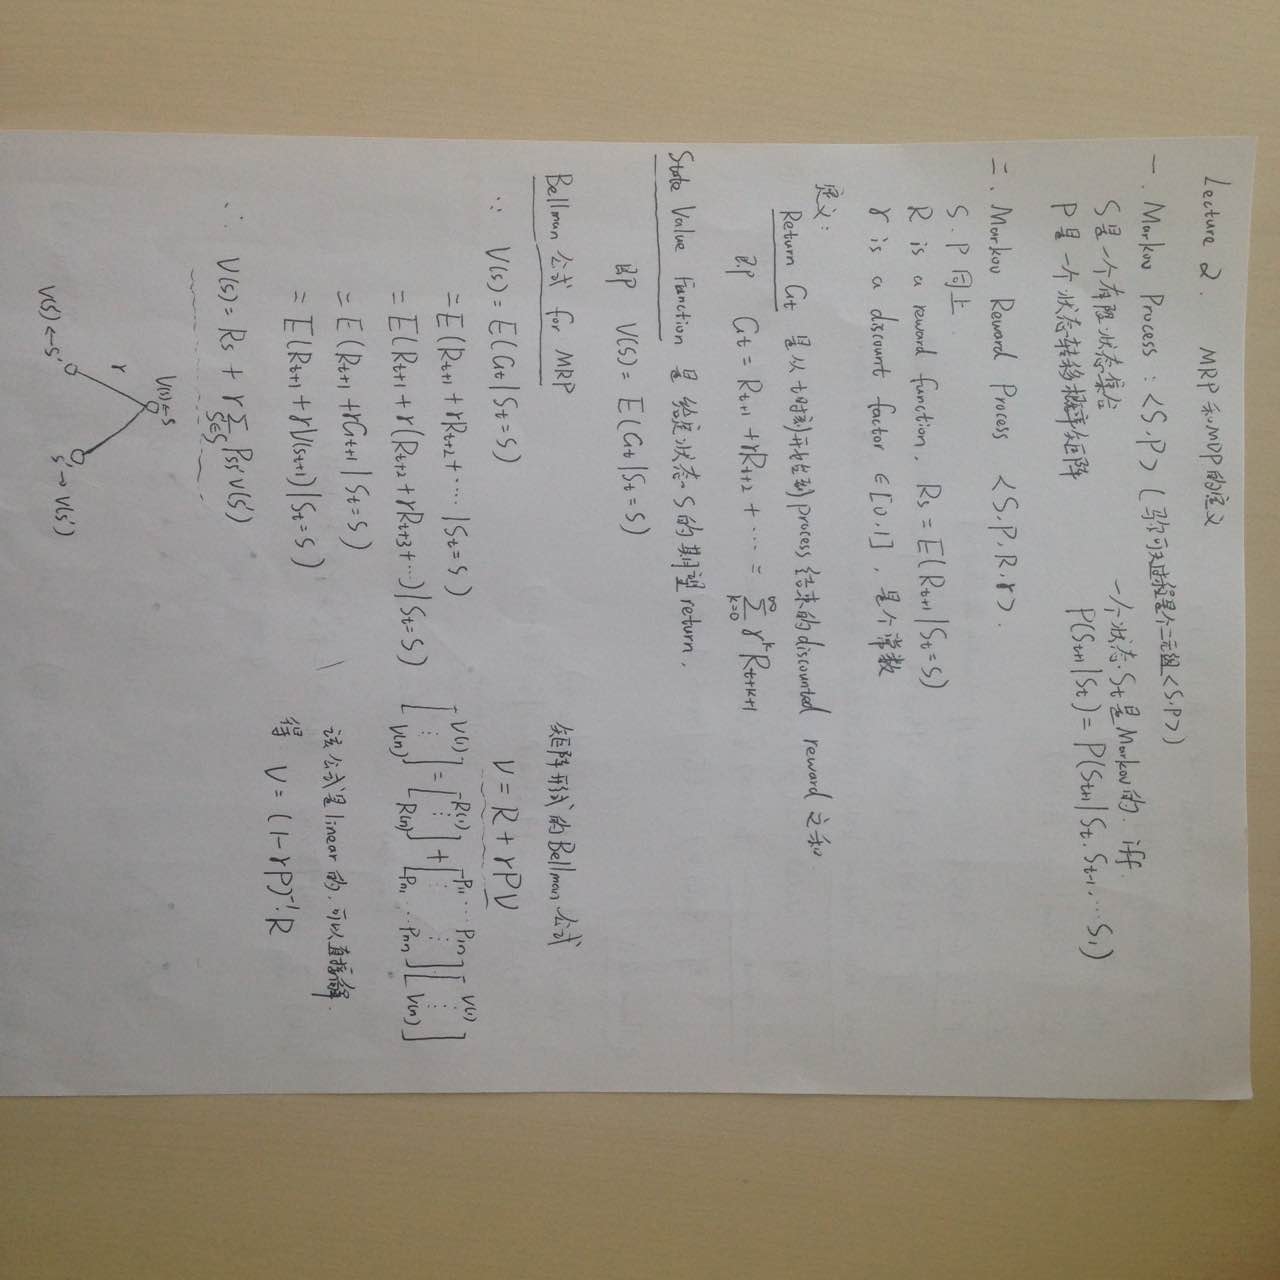 Lecture 2. MRP和MDP的定义
一. Markov Process : <S.P> (马尔可夫过程是个二元组<S.P>)
S是一个有限状态集合
P是一个状态转移概率矩阵
一个状态.St是Markov的. iff.
P(St+1|St) = P(St+1|St.St-1.…S1)
二. Markov Reward Process <S.P.R.γ>.
S.P同上.
R is a reward function. Rs = E(Rt+1|St=s)
γ is a discount factor ∈[0.1]. 是个常数
定义:
Return Gt 是从t时刻开始到process结束的discounted reward之和
即 Gt = Rt+1 + γRt+2 + … = ∑_{k=0}^{∞} γ^k Rt+k+1
State Value Function 是给定状态S的期望return.
即 V(S) = E(Gt|St=S)
Bellman 公式 for MRP
∵ V(s) = E(Gt|St=s)
= E(Rt+1 + γRt+2 + …. |St=s)
= E(Rt+1 + γ(Rt+2 + γRt+3 + …)|St=s)
= E(Rt+1 + γGt+1 | St=s)
= E(Rt+1 + γV(st+1)|St=s)
∴ V(s) = Rs + γ∑_{s'∈S} Pss' V(s')
V(s)←s
γ
V(s')←s' s'→V(s')
矩阵形式的Bellman公式
V = R + γPV
[V(1) ⋮ V(n)] = [R(1) ⋮ R(n)] + [P11 … P1n ⋮ ⋮ Pn1 … Pnn][V(1) ⋮ V(n)]
该公式是linear的.可以直接解.
得 V = (1-γP)^-1.R